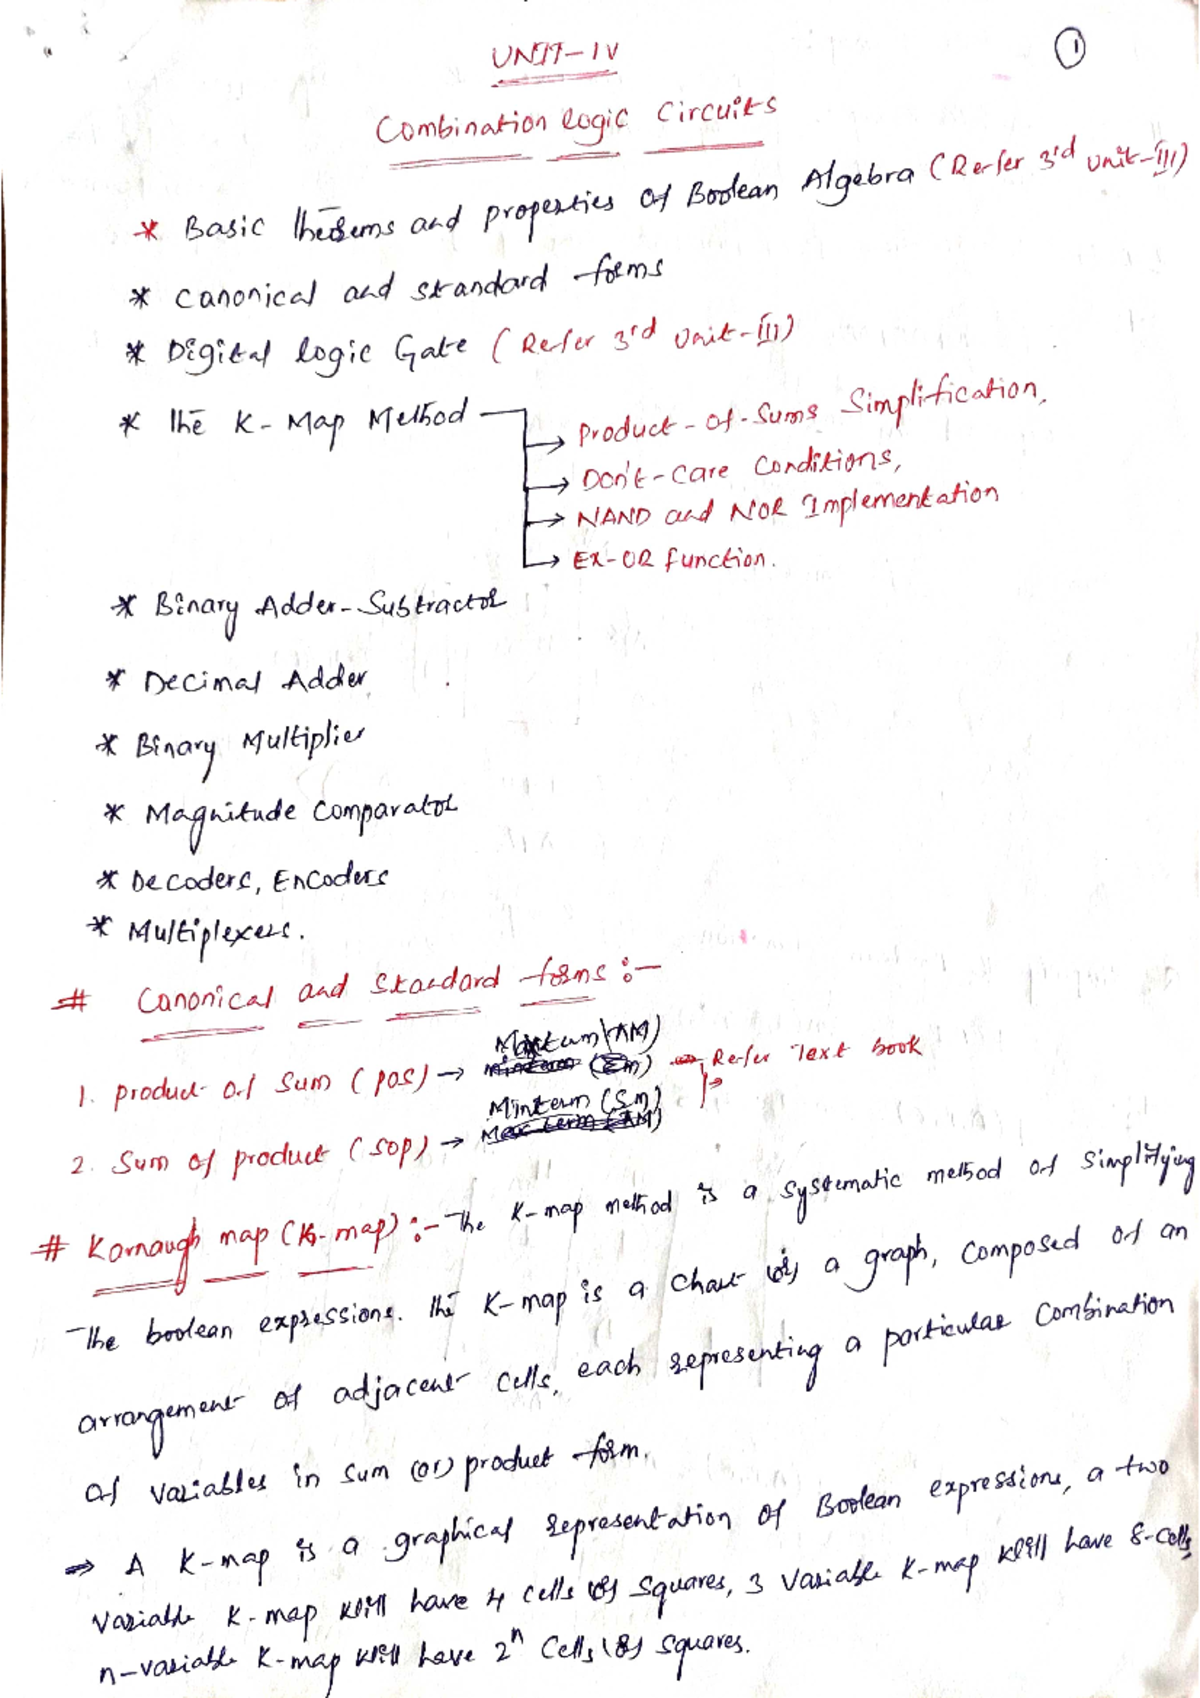 UNIT-IV
1
Combination logic Circuits
* Basic theorems and properties of Boolean Algebra (Refer 3rd unit-III)
* Canonical and standard forms
* Digital logic Gate (Refer 3rd Unit-III)
* The K-Map Method
→ Product-of-Sums Simplification,
→ Don't-Care Conditions,
→ NAND and NOR Implementation
→ Ex-OR function.
* Binary Adder-Subtractor
* Decimal Adder
* Binary Multiplier
* Magnitude Comparator
* Decoders, Encoders
* Multiplexers.
# Canonical and Standard forms :-
1. product of Sum (POS) → Maxterm (πM)
→ Refer Text book
2. Sum of product (SOP) → Minterm (Σm)
# Karnaugh map (K-map) :- The K-map method is a systematic method of Simplifying
The boolean expressions. The K-map is a chart (or) a graph, composed of an
arrangement of adjacent cells, each representing a particular Combination
of variables in sum (or) product form.
⇒ A K-map is a graphical representation of Boolean expressions, a two
variable K-map will have 4 cells (or) squares, 3 variable K-map will have 8-cells,
n-variable K-map will have 2ⁿ Cells (or) squares.